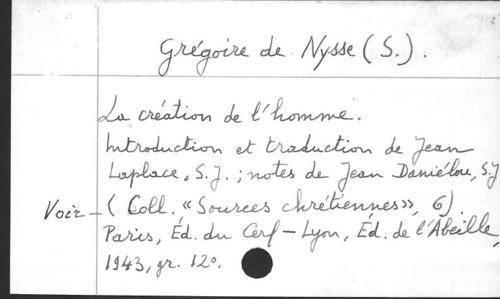 Grégoire de Nysse (S.).
La création de l'homme.
Introduction et traduction de Jean
Laplace, S.J. ; notes de Jean Daniélou, S.J
Voir — ( Coll. «Sources chrétiennes», 6)
Paris, Éd. du Cerf — Lyon, Éd. de l'Abeille,
1943, gr. 12º.